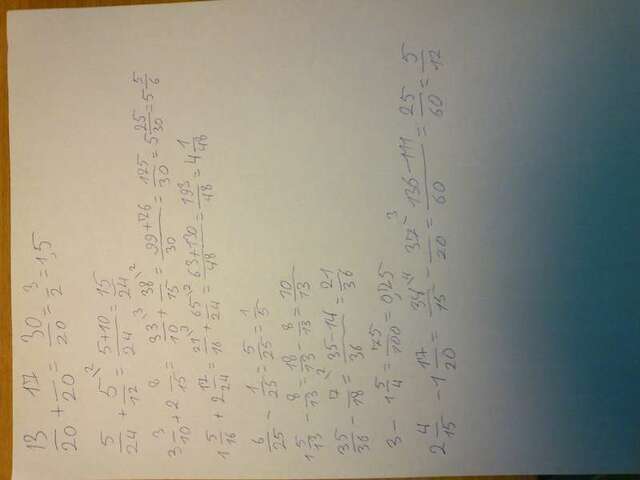 13/20 + 17/20 = 30/20 = 3/2 = 1,5
5/24 + 5/12 = (5+10)/24 = 15/24
3 3/10 + 2 8/15 = 33/10 + 38/15 = (99+76)/30 = 125/30 = 5 25/30 = 5 5/6
1 5/16 + 2 17/24 = 21/16 + 65/24 = (63+130)/48 = 193/48 = 4 1/48
6/25 - 1/25 = 5/25 = 1/5
1 5/13 - 8/13 = 18/13 - 8/13 = 10/13
35/36 - 7/18 = (35-14)/36 = 21/36
3 - 1 5/4 = 75/100 = 0,75
2 4/15 - 1 17/20 = 34/15 - 37/20 = (136-111)/60 = 25/60 = 5/12